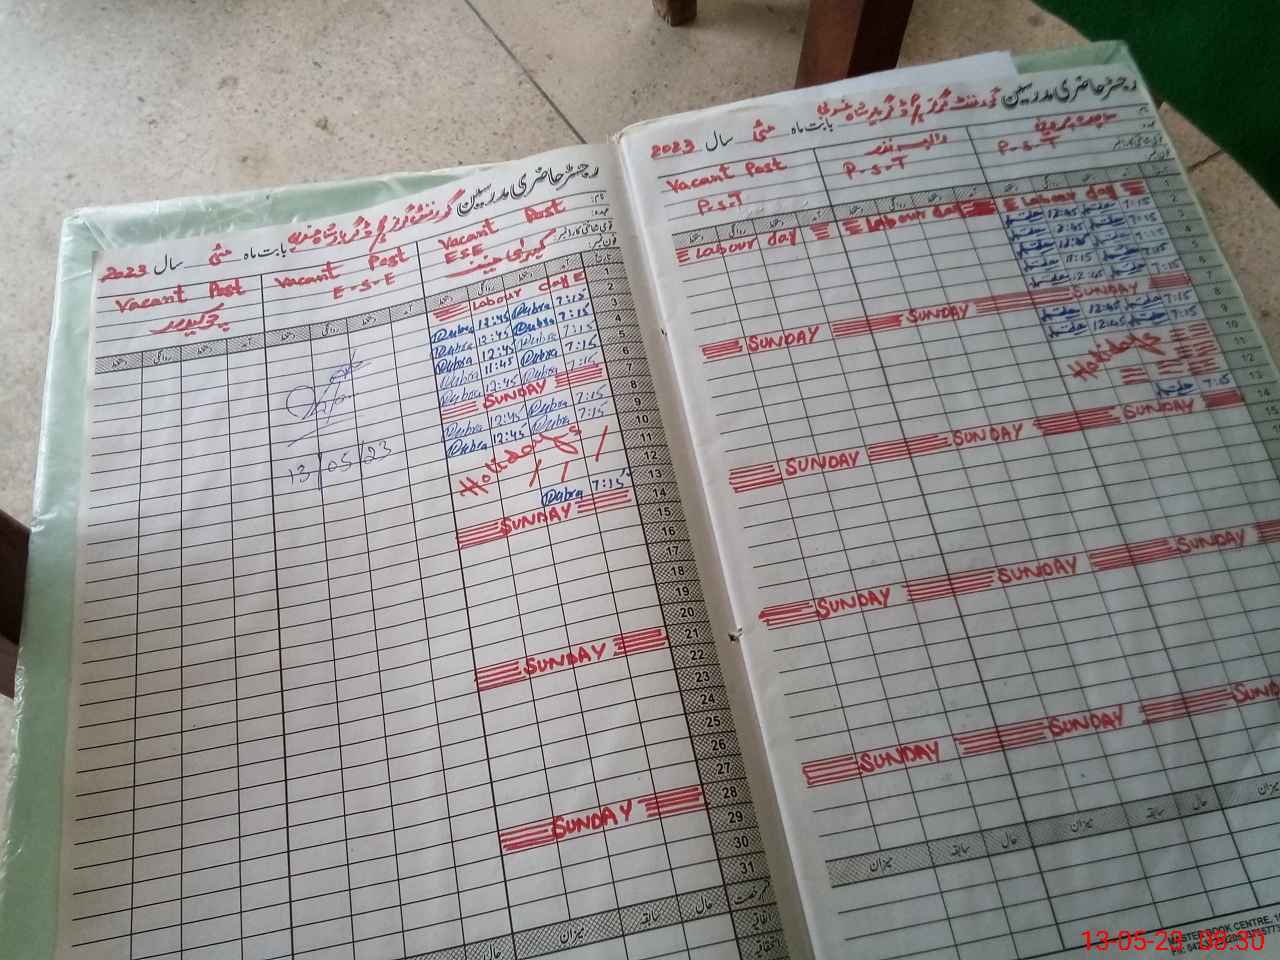 رجسٹر حاضری مدرسین گورنمنٹ گرلز
بابت ماہ مئی سال 2023
Vacant Post
ESE
Vacant Post
E-S-E
Vacant Post
چوکیدار
تاریخ آمد دستخط روانگی دستخط آمد دستخط روانگی دستخط آمد دستخط روانگی دستخط
1 Labour day
2 7:15 Qubra 12:45 Qubra
3 7:15 Qubra 12:45 Qubra
4 7:15 Qubra 12:45 Qubra
5 7:15 Qubra 11:45 Qubra
6 7:15 Qubra 12:45 Qubra
7 SUNDAY
8 7:15 Qubra 12:45 Qubra
9 7:15 Qubra 12:45 Qubra
10
11 Holidays
12
13 7:15 Qubra
14 SUNDAY
15
16
17
18
19
20
21 SUNDAY
22
23
24
25
26
27
28 SUNDAY
29
30
31
13/05/23
حال سابقہ میزان
رجسٹر حاضری مدرسین گورنمنٹ گرلز
بابت ماہ مئی سال 2023
P-S-T
P-S-T
Vacant Post
P-S-T
1 Labour day Labour day Labour day
2 7:15 12:45
3 7:15 12:45
4 7:15 12:45
5 7:15 11:45
6 7:15 12:45
7 SUNDAY SUNDAY SUNDAY
8 7:15 12:45
9 7:15 12:45
10
11 Holidays
12
13 7:15
14 SUNDAY SUNDAY SUNDAY
15
SUNDAY SUNDAY SUNDAY
SUNDAY SUNDAY SUNDAY
میزان حال سابقہ میزان حال سابقہ میزان
MASTER BOOK CENTRE
13-05-23 08:30